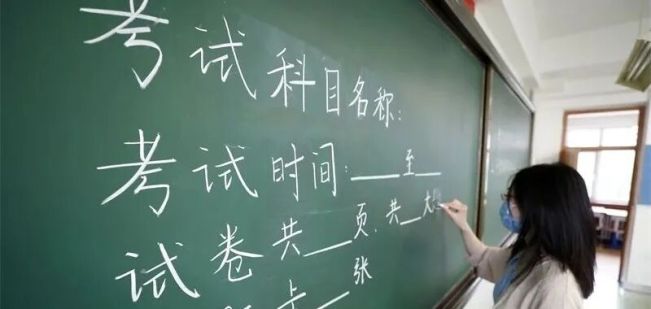 考试科目名称:
考试时间:___至___
试卷共___页,共___大
卡___张